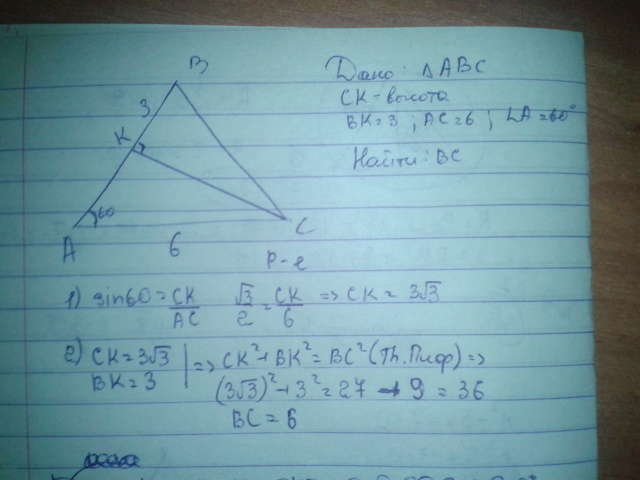 B
3
K
60
A
6
C
Дано: ΔABC
CK - высота
BK = 3 ; AC = 6 ; ∠A = 60°
Найти: BC
Р-е
1) sin60 = CK/AC √3/2 = CK/6 => CK = 3√3
2) CK = 3√3
BK = 3
=> CK² + BK² = BC² (Th. Пиф) =>
(3√3)² + 3² = 27 + 9 = 36
BC = 6